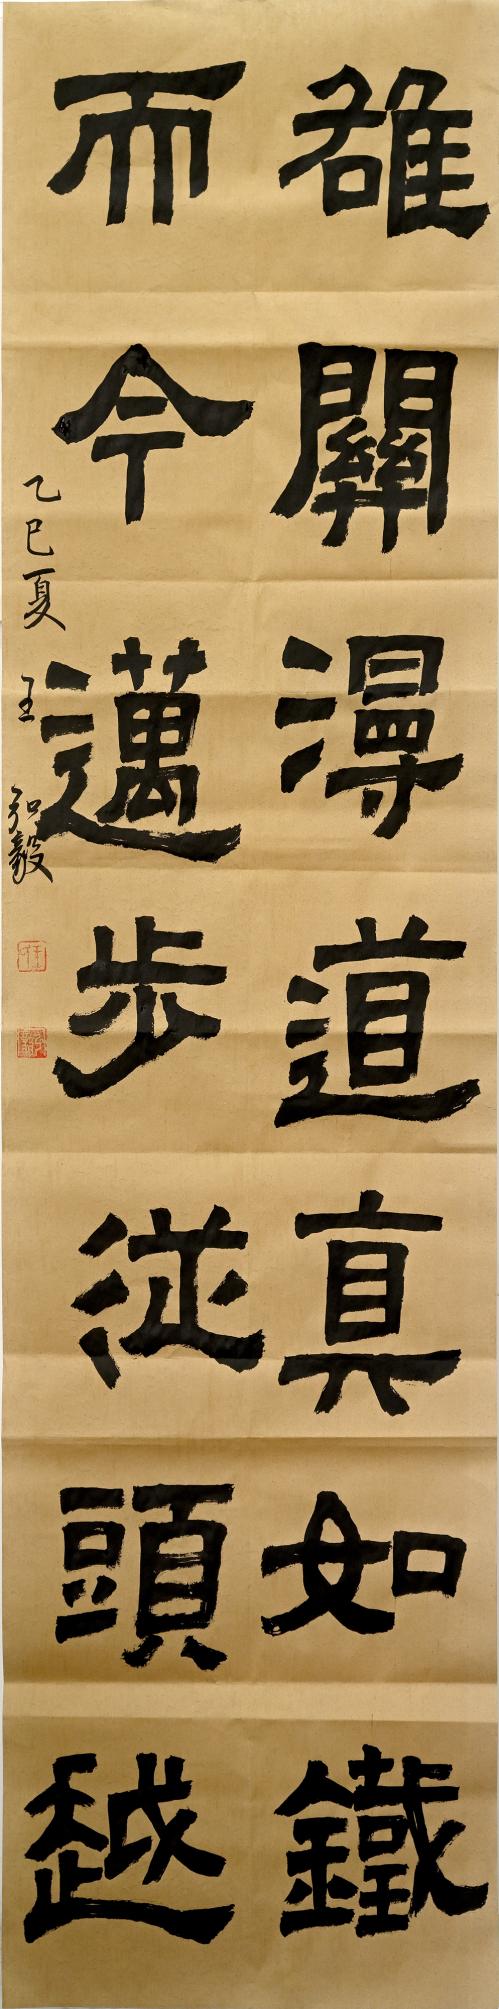 雄關漫道真如鐵
而今邁步從頭越
乙巳夏 王弘毅